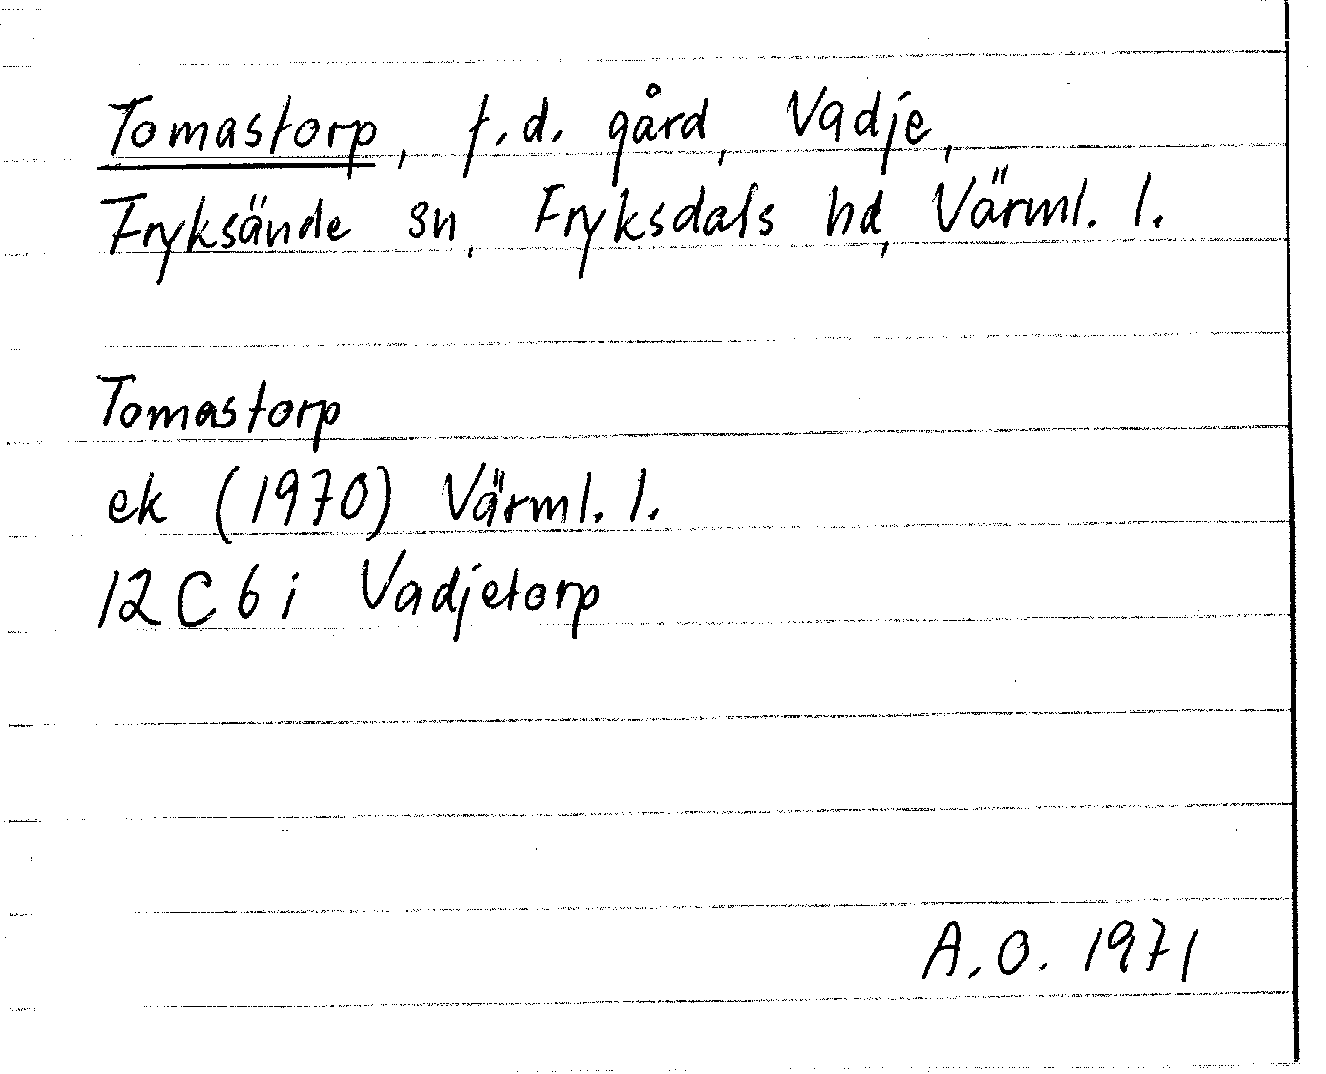 Tomastorp, f.d. gård, Vadje,
Fryksände sn, Fryksdals hd, Värml. l.
Tomastorp
ek (1970) Värml. l.
12 C 6 i Vadjetorp
A.O. 1971